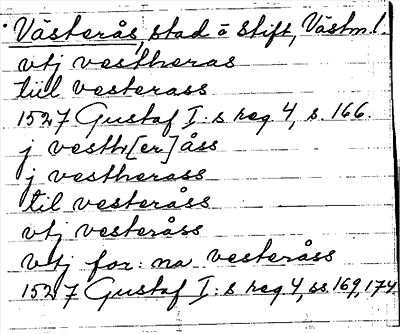 Västerås, stad o stift, Västm l.
vtj vestheras
till vesterass
1527 Gustaf I:s reg 4, s. 166.
j vesth[er]åss
j vestherass
til vesteråss
vtj vesteråss
vtj for:na vesteråss
1527 Gustaf I:s reg 4, ss. 169, 174